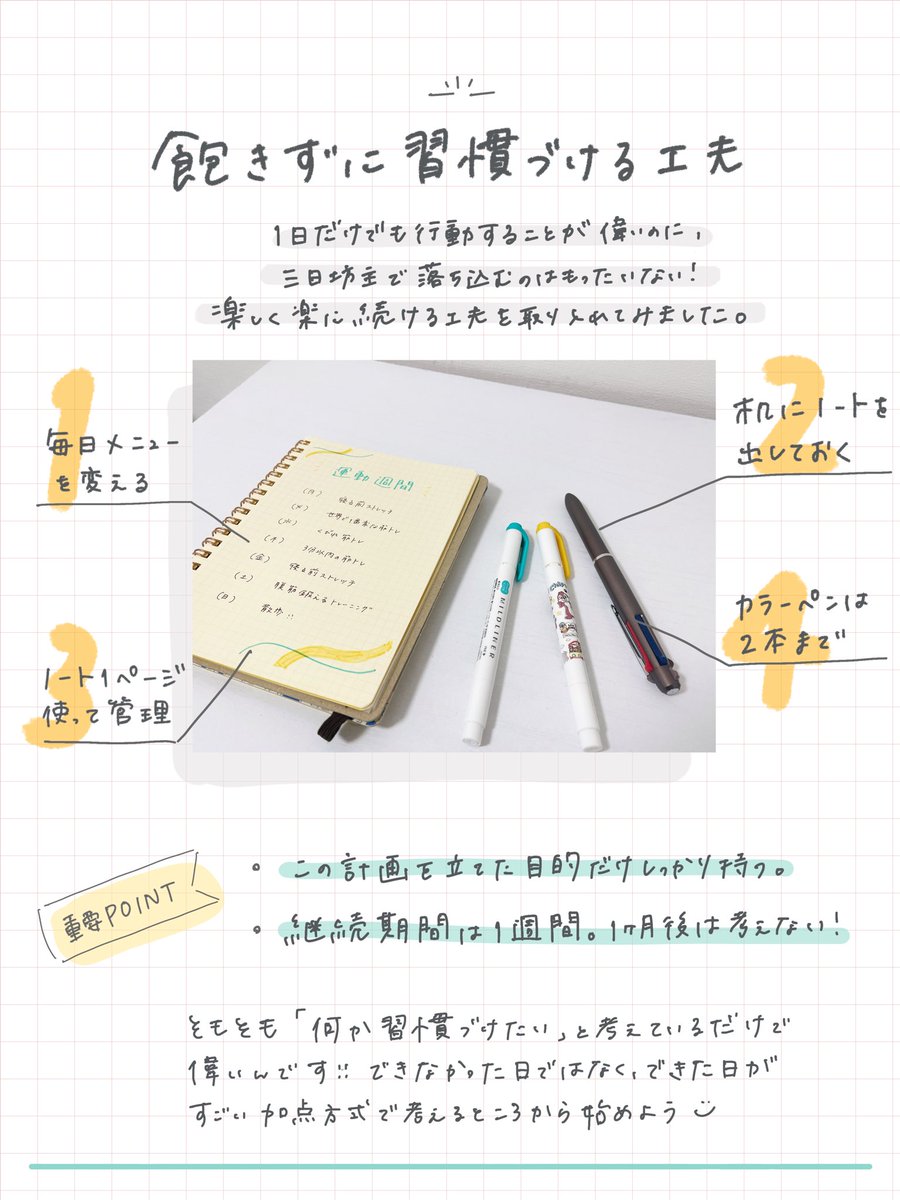 飽きずに習慣づける工夫
1日だけでも行動することが偉いのに、
三日坊主で落ち込むのはもったいない!
楽しく楽に続ける工夫を取り入れてみました。
1
毎日メニュー
を変える
2
机にノートを
出しておく
運動週間
(月) 寝る前ストレッチ
(火) 世界で1番楽な筋トレ
(水) くびれ筋トレ
(木) 3分以内の筋トレ
(金) 寝る前ストレッチ
(土) 腹筋鍛えるトレーニング
(日) 散歩!!
MILDLINER
3
ノート1ページ
使って管理
4
カラーペンは
2本まで
重要POINT
・この計画を立てた目的だけしっかり持つ。
・継続期間は1週間。1ヶ月後は考えない!
そもそも「何か習慣づけたい」と考えているだけで
偉いんです!! できなかった日ではなく、できた日が
すごい加点方式で考えるところから始めよう